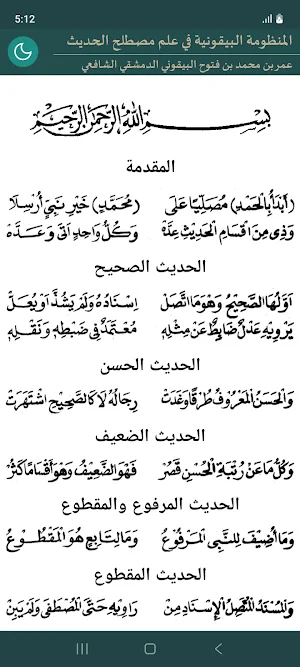 5:12
المنظومة البيقونية في علم مصطلح الحديث
عمر بن محمد بن فتوح البيقوني الدمشقي الشافعي
بسم الله الرحمن الرحيم
المقدمة
(أَبْدَأُ بِالحَمْدِ) مُصَلِّيًا عَلَى (مُحَمَّدٍ) خَيْرِ نَبِيٍّ أُرْسِلَا
وَذِي مِنَ اقْسَامِ الْحَدِيثِ عِدَّهْ وَكُلُّ وَاحِدٍ اَتَى وَعَدَّهْ
الحديث الصحيح
اَوَّلُهَا الصَّحِيحُ وَهُوَ مَا اتَّصَلْ اِسْنَادُهُ وَلَمْ يَشُذَّ اَوْ يُعَلّْ
يَرْوِيهِ عَدْلٌ ضَابِطٌ عَنْ مِثْلِهِ مُعْتَمَدٌ فِي ضَبْطِهِ وَنَقْلِهِ
الحديث الحسن
وَالْحَسَنُ الْمَعْرُوفُ طُرْقًا وَغَدَتْ رِجَالُهُ لَا كَالصَّحِيحِ اشْتَهَرَتْ
الحديث الضعيف
وَكُلُّ مَا عَنْ رُتْبَةِ الْحُسْنِ قَصُرْ فَهُوَ الضَّعِيفُ وَهُوَ اَقْسَامًا كَثُرْ
الحديث المرفوع والمقطوع
وَمَا اُضِيفَ لِلنَّبِي الْمَرْفُوعُ وَمَا لِتَابِعٍ هُوَ الْمَقْطُوعُ
الحديث المقطوع
وَالْمُسْنَدُ الْمُتَّصِلُ الْاِسْنَادِ مِنْ رَاوِيهِ حَتَّى الْمُصْطَفَى وَلَمْ يَبِنْ